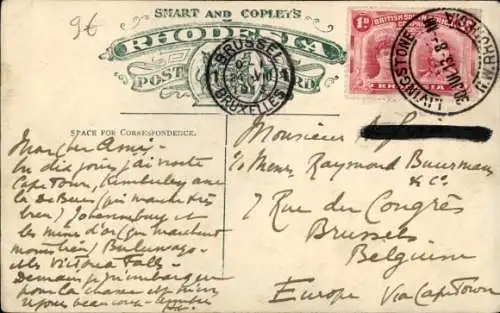 9c
SMART AND COPLEYS
RHODESIA
POST CARD
BRUSSEL
1 1
BRUXELLES
1D
BRITISH SOUTH AFRICA
RHODESIA
LIVINGSTONE
SPACE FOR CORRESPONDENCE.
Mon cher Ami,
En dix jours j'ai visité
Cape Town, Kimberley avec
la De Beers (qui marche très
bien) Johannesburg et
les mines d'or (qui marchent
Buluwayo
Victoria Falls -
Demain je
pour la chasse et
beaucoup
Monsieur
c/o Menrs Raymond Buurmans
& Co.
7 Rue du Congrès
Brussels
Belgium
Europe Via Cape Town